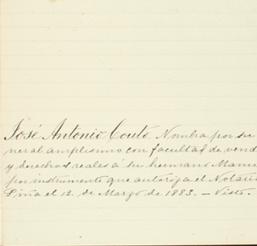 José Antonio Couto Nombra por su
neral amplísimo con facultad de vend
y derechos reales á su hermano Manue
por instrumento que autoriza el Notario
Lima el 12 de Marzo de 1883. — Visto.